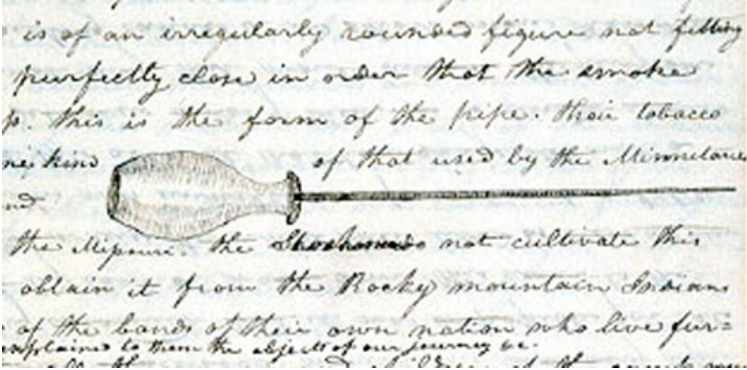 is of an irregularly rounded figure not fitting
perfectly close in order that the smoke
p. this is the form of the pipe. their tobacco
me kind of that used by the Minnetare
nd
the Missouri. the Shoshonees do not cultivate this
obtain it from the Rocky mountain Indians
of the bands of their own nation who live fur=
explained to them the objects of our journey &c.